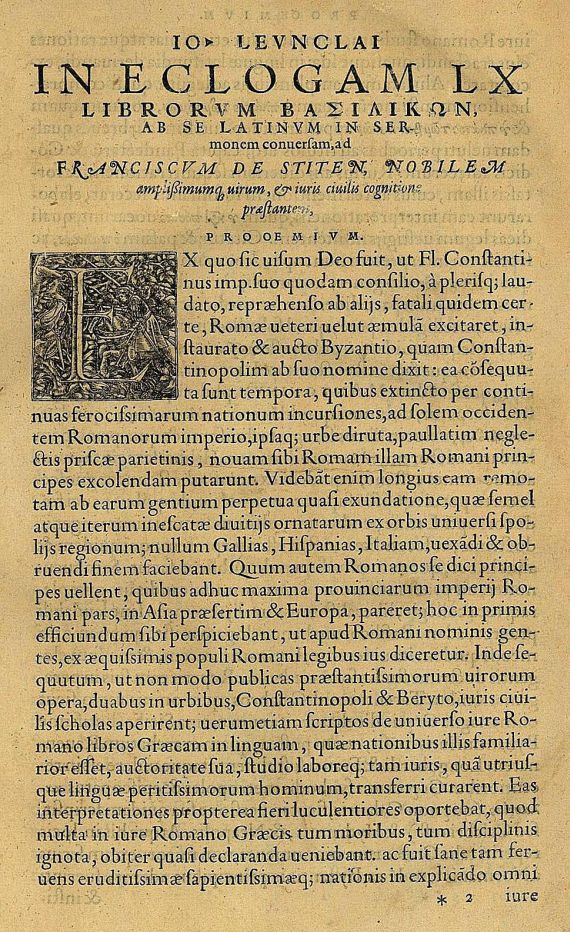 IO. LEVNCLAI
IN ECLOGAM LX
LIBRORVM ΒΑΣΙΛΙΚΩΝ,
AB SE LATINVM IN SER-
monem conuersam, ad
FRANCISCVM DE STITEN, NOBILEM
amplißimumq́ uirum, & iuris ciuilis cognitione
præstantem,
PROOEMIVM.
EX quo sic uisum Deo fuit, ut Fl. Constanti-
nus imp. suo quodam consilio, à plerisq; lau-
dato, repræhenso ab alijs, fatali quidem cer-
te, Romæ ueteri uelut æmulā excitaret, in-
staurato & aucto Byzantio, quam Constan-
tinopolim ab suo nomine dixit: ea cōsequu-
ta sunt tempora, quibus extincto per conti-
nuas ferocissimarum nationum incursiones, ad solem occiden-
tem Romanorum imperio, ipsaq; urbe diruta, paullatim negle-
ctis priscæ parietinis, nouam sibi Romam illam Romani prin-
cipes excolendam putarunt. Videbāt enim longius eam remo-
tam ab earum gentium perpetua quasi exundatione, quæ semel
atque iterum inescatæ diuitijs ornatarum ex orbis uniuersi spo-
lijs regionum; nullum Gallias, Hispanias, Italiam, uexādi & ob-
ruendi finem faciebant. Quum autem Romanos se dici princi-
pes uellent, quibus adhuc maxima prouinciarum imperij Ro-
mani pars, in Asia præsertim & Europa, pareret; hoc in primis
efficiundum sibi perspiciebant, ut apud Romani nominis gen-
tes, ex æquissimis populi Romani legibus ius diceretur. Inde se-
quutum, ut non modo publicas præstantissimorum uirorum
opera, duabus in urbibus, Constantinopoli & Beryto, iuris ciui-
lis scholas aperirent; uerumetiam scriptos de uniuerso iure Ro-
mano libros Græcam in linguam, quæ nationibus illis familia-
rior esset, auctoritate sua, studio laboreq; tam iuris, quā utrius-
que linguæ peritissimorum hominum, transferri curarent. Eas
interpretationes propterea fieri luculentiores oportebat, quod
multa in iure Romano Græcis tum moribus, tum disciplinis
ignota, obiter quasi declaranda ueniebant. ac fuit sane tam fer-
uens eruditissimæ sapientissimæq; nationis in explicādo omni
* 2 iure